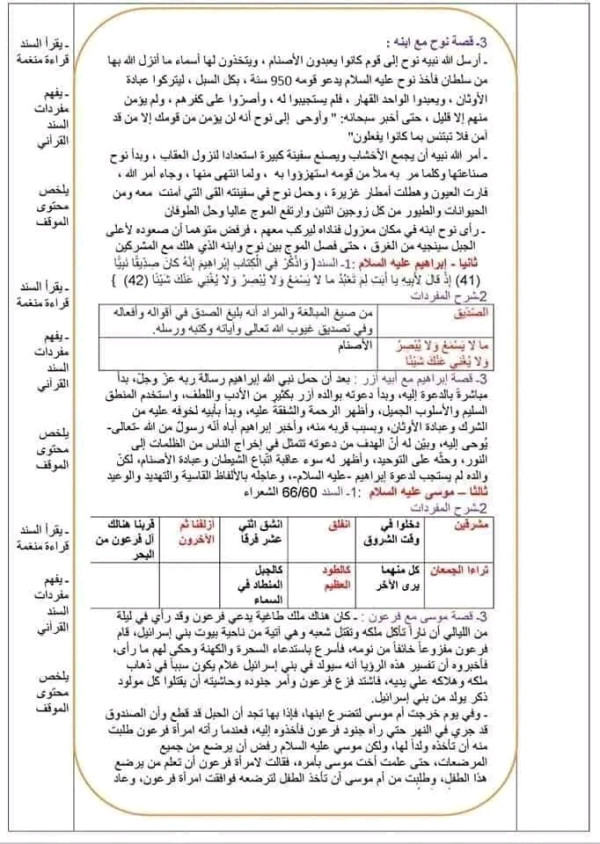 3ـ قصة نوح مع ابنه :
ـ أرسل الله نبيه نوح إلى قوم كانوا يعبدون الأصنام ، ويتخذون لها أسماء ما أنزل الله بها
من سلطان فأخذ نوح عليه السلام يدعو قومه 950 سنة ، بكل السبل ، ليتركوا عبادة
الأوثان ، ويعبدوا الواحد القهار ، فلم يستجيبوا له ، وأصرّوا على كفرهم ، ولم يؤمن
منهم إلا قليل ، حتى أخبر سبحانه: " وأوحى إلى نوح أنه لن يؤمن من قومك إلا من قد
آمن فلا تبتئس بما كانوا يفعلون"
ـ أمر الله نبيه أن يجمع الأخشاب ويصنع سفينة كبيرة استعدادا لنزول العقاب ، وبدأ نوح
صناعتها وكلما مر به ملأ من قومه استهزؤوا به ، ولما انتهى منها ، وجاء أمر الله ،
فارت العيون وهطلت أمطار غزيرة ، وحمل نوح في سفينته القى التي آمنت معه ومن
الحيوانات والطيور من كل زوجين اثنين وارتفع الموج عاليا وحل الطوفان
ـ رأى نوح ابنه في مكان معزول فناداه ليركب معهم ، فرفض متوهما أن صعوده لأعلى
الجبل سينجيه من الغرق ، حتى فصل الموج بين نوح وابنه الذي هلك مع المشركين
ثانيا - إبراهيم عليه السلام :1ـ السند( وَاذْكُرْ فِي الْكِتَابِ إِبْرَاهِيمَ إِنَّهُ كَانَ صِدِّيقًا نَبِيًّا
(41) إِذْ قَالَ لِأَبِيهِ يا أبَتِ لِمَ تَعْبُدُ ما لا يَسْمَعُ وَلا يُبْصِرُ وَلا يُغْنِي عَنْكَ شَيْئًا (42) }
2ـشرح المفردات
الصّدّيق
من صيغ المبالغة والمراد أنه بليغ الصدق في أقواله وأفعاله
وفي تصديق غيوب الله تعالى وآياته وكتبه ورسله.
ما لا يَسْمَعُ وَلا يُبْصِرُ
وَلا يُغْنِي عَنْكَ شَيْئًا
الأصنام
3ـ قصة إبراهيم مع أبيه آزر : بعد أن حمل نبي الله إبراهيم رسالة ربه عزّ وجلّ، بدأ
مباشرة بالدعوة إليه، وبدأ دعوته بوالده آزر بكثيرٍ من الأدب واللطف، واستخدم المنطق
السليم والأسلوب الجميل، وأظهر الرحمة والشفقة عليه، وبدأ بأبيه لخوفه عليه من
الشرك وعبادة الأوثان، وبسبب قربه منه، وأخبر إبراهيم أباه أنّه رسولٌ من الله -تعالى-
يُوحى إليه، وبيّن له أنّ الهدف من دعوته تتمثل في إخراج الناس من الظلمات إلى
النور، وحثّه على التوحيد، وأظهر له سوء عاقبة اتّباع الشيطان وعبادة الأصنام، لكنّ
والده لم يستجب لدعوة إبراهيم -عليه السلام-، وعاجله بالألفاظ القاسية والتهديد والوعيد
ثالثا – موسى عليه السلام :1ـ السند 66/60 الشعراء
2ـشرح المفردات
مشرقين
دخلوا في
وقت الشروق
انفلق
انشق اثني
عشر فرقا
أزلفنا ثم
الآخرون
قربنا هنالك
آل فرعون من
البحر
تراءا الجمعان
كل منهما
يرى الآخر
كالطود
العظيم
كالجبل
المنطاد في
السماء
3ـ قصة موسى مع فرعون : ـ كان هناك ملك طاغية يدعي فرعون وقد رأي في ليلة
من الليالي أن ناراً تأكل ملكه وتقتل شعبه وهي آتية من ناحية بيوت بني إسرائيل، قام
فرعون مفزوعاً خائفاً من نومه، فأسرع باستدعاء السحرة والكهنة وحكى لهم ما رأى،
فأخبروه أن تفسير هذه الرؤيا أنه سيولد في بني إسرائيل غلام يكون سبباً في ذهاب
ملكه وهلاكه علي يديه، فاشتد فزع فرعون وأمر جنوده وحاشيته أن يقتلوا كل مولود
ذكر يولد من بني إسرائيل.
ـ وفي يوم خرجت أم موسى لتضرع ابنها، فإذا بها تجد أن الحبل قد قطع وأن الصندوق
قد جري في النهر حتي رآه جنود فرعون فأخذوه إليه، فعندما رأته امرأة فرعون طلبت
منه أن تأخذه ولداً لها، ولكن موسى عليه السلام رفض أن يرضع من جميع
المرضعات، حتى علمت أخت موسى بأمره، فقالت لامرأة فرعون أن تعلم من يرضع
هذا الطفل، وطلبت من أم موسى أن تأخذ الطفل لترضعه فوافقت امرأة فرعون، وعاد
ـ يقرأ السند
قراءة منغمة
ـ يفهم
مفردات
السند
القرآني
يلخص
محتوى
الموقف
ـ يقرأ السند
قراءة منغمة
ـ يفهم
مفردات
السند
القرآني
يلخص
محتوى
الموقف
ـ يقرأ السند
قراءة منغمة
ـ يفهم
مفردات
السند
القرآني
يلخص
محتوى
الموقف